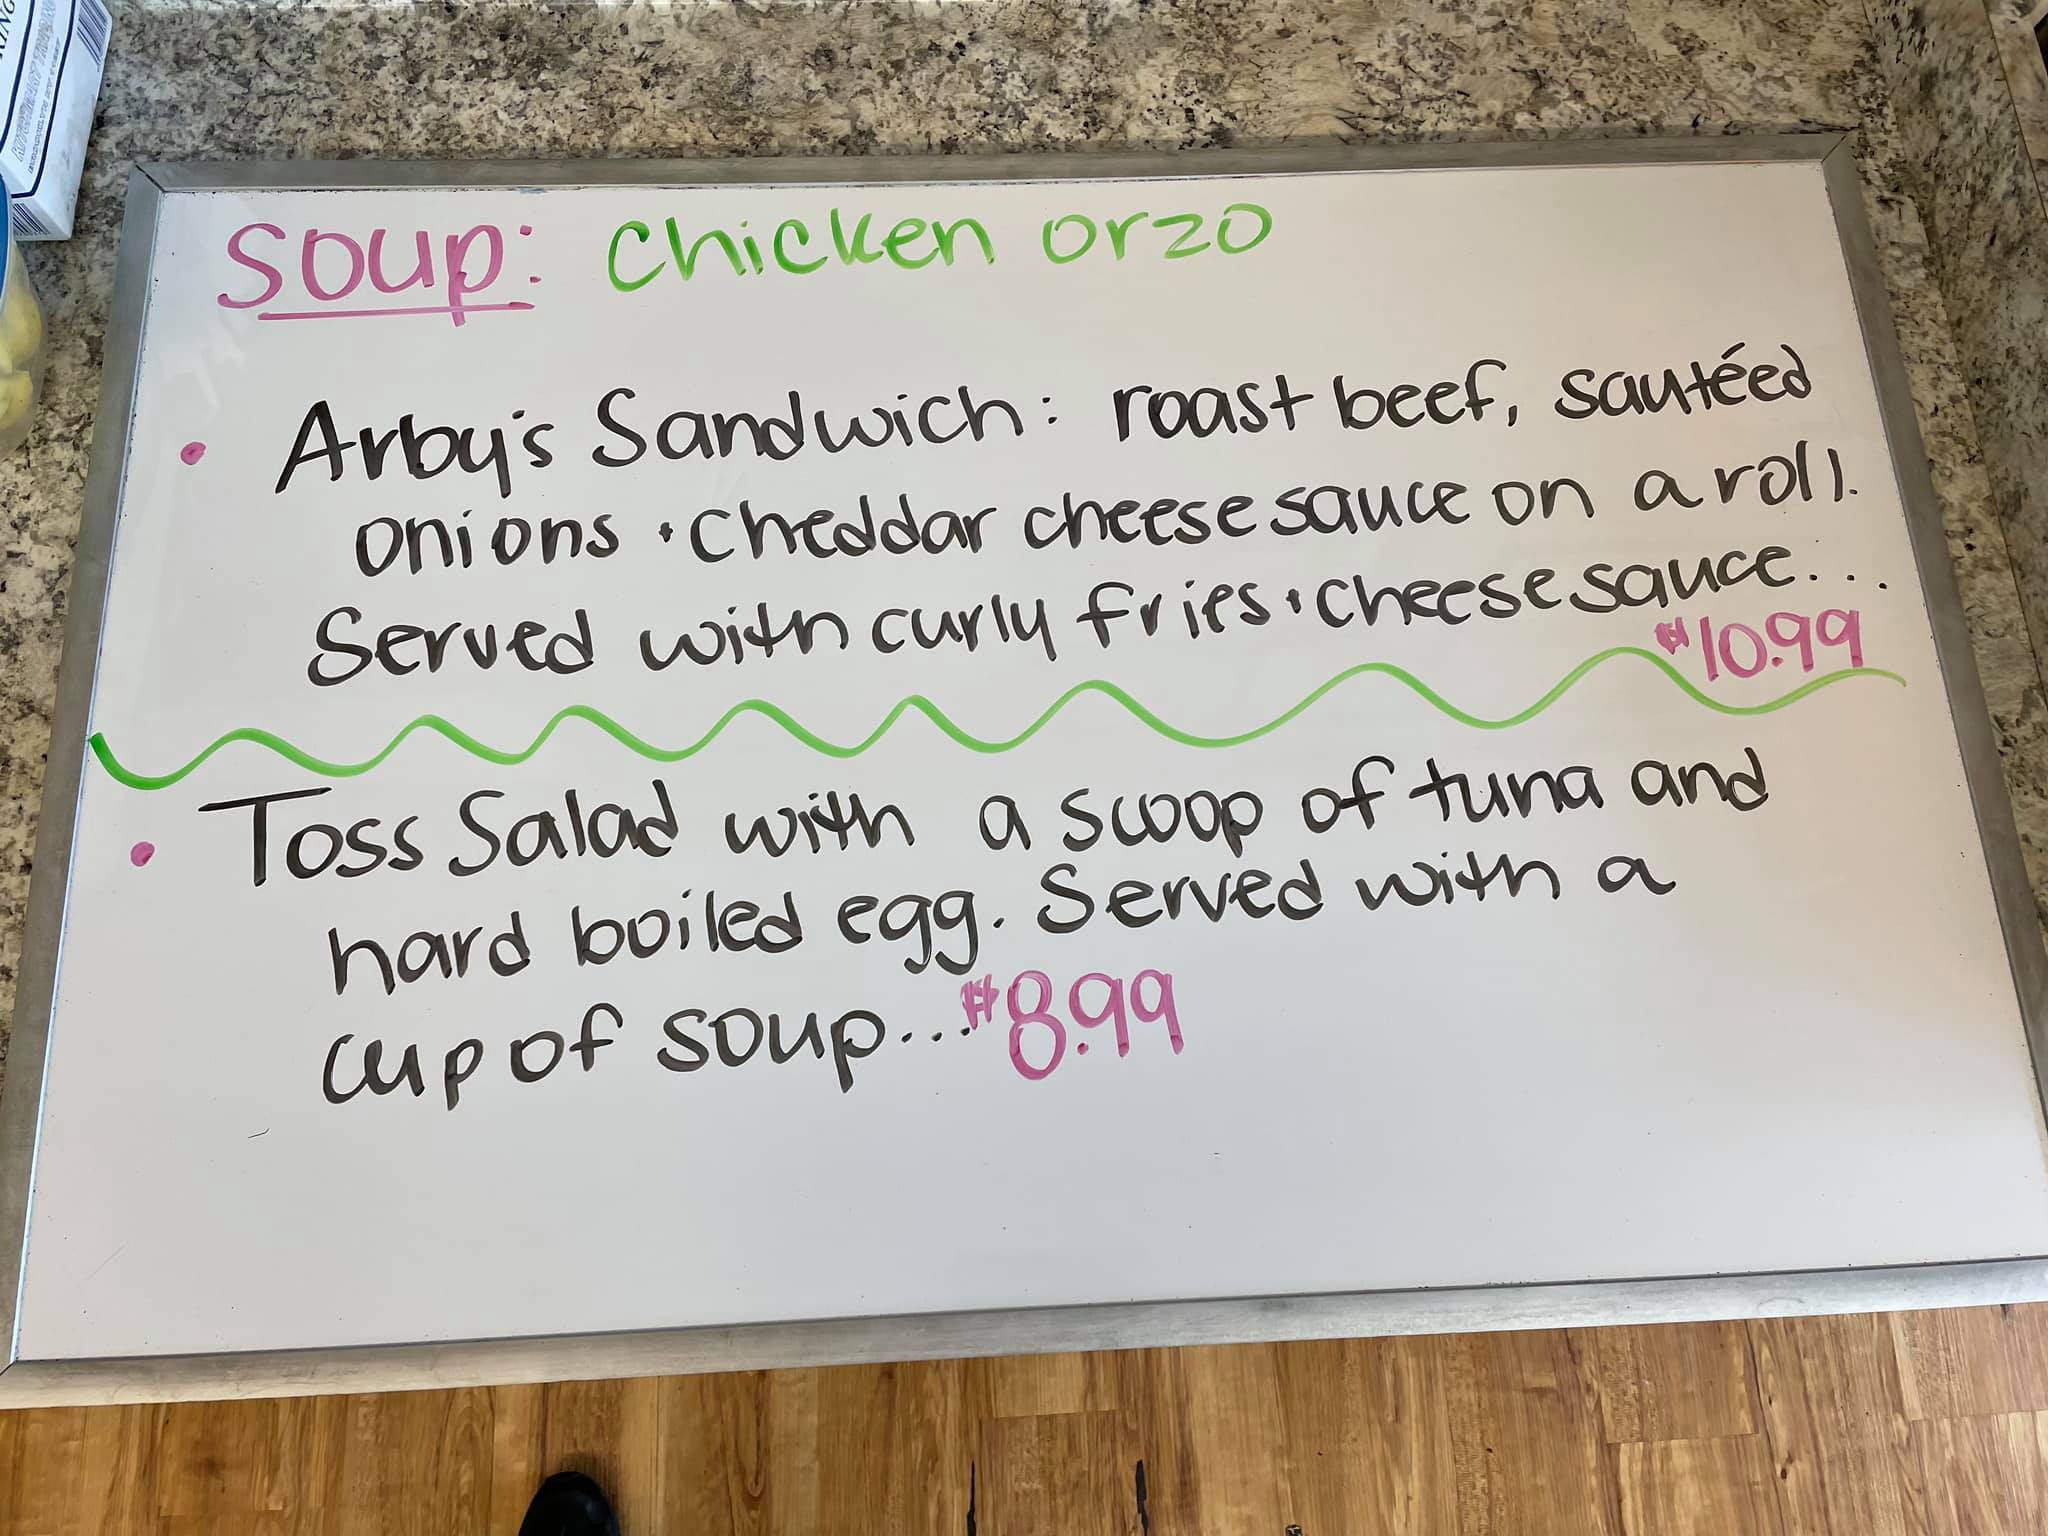 Soup: Chicken orzo
• Arby's Sandwich: roast beef, sautéed
onions + cheddar cheese sauce on a roll.
Served with curly fries + cheese sauce...
$10.99
• Toss Salad with a scoop of tuna and
hard boiled egg. Served with a
cup of soup... $8.99